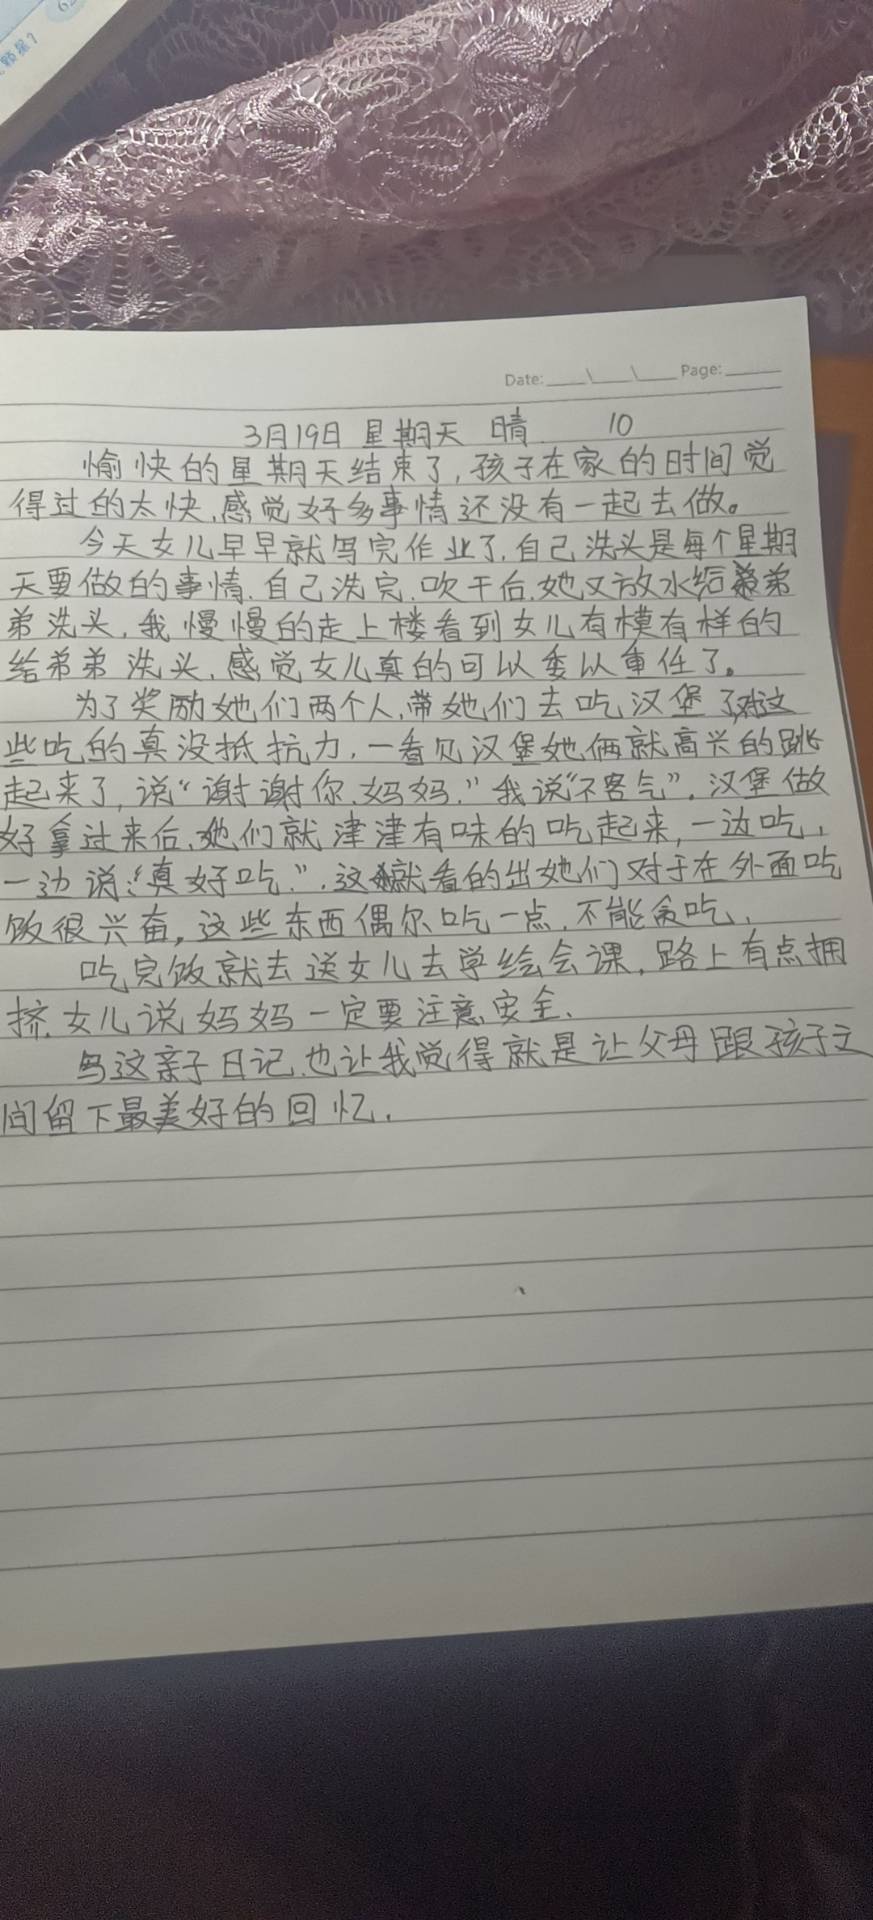 颗星?
Date: \ \ Page:
3月19日 星期天 晴 10
愉快的星期天结束了,孩子在家的时间觉
得过的太快,感觉好多事情还没有一起去做。
今天女儿早早就写完作业了,自己洗头是每个星期
天要做的事情,自己洗完,吹干后,她又放水给弟
弟洗头,我慢慢的走上楼看到女儿有模有样的
给弟弟洗头,感觉女儿真的可以委以重任了。
为了奖励她们两个人,带她们去吃汉堡了,对这
些吃的真没抵抗力,一看见汉堡她俩就高兴的跳
起来了,说“谢谢你,妈妈.”我说“不客气”,汉堡做
好拿过来后,她们就津津有味的吃起来,一边吃,
一边说:“真好吃.”,这就看的出她们对于在外面吃
饭很兴奋,这些东西偶尔吃一点,不能贪吃,
吃完饭就去送女儿去学绘会课,路上有点拥
挤,女儿说妈妈一定要注意安全,
写这亲子日记,也让我觉得就是让父母跟孩子之
间留下最美好的回忆,